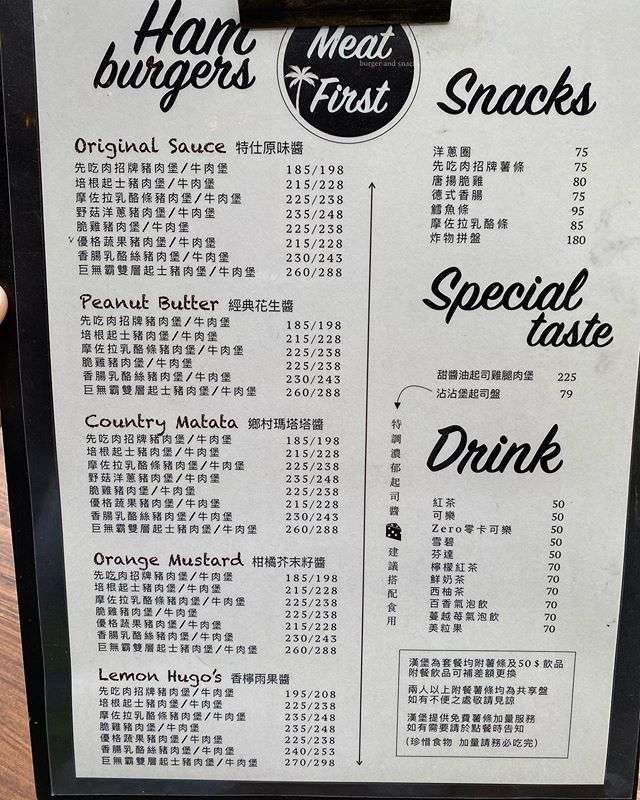 Ham
burgers
Meat
burger and snac
First
Original Sauce 特仕原味醬
先吃肉招牌豬肉堡/牛肉堡 185/198
培根起士豬肉堡/牛肉堡 215/228
摩佐拉乳酪條豬肉堡/牛肉堡 225/238
野菇洋蔥豬肉堡/牛肉堡 235/248
脆雞豬肉堡/牛肉堡 225/238
優格蔬果豬肉堡/牛肉堡 215/228
香腸乳酪絲豬肉堡/牛肉堡 230/243
巨無霸雙層起士豬肉堡/牛肉堡 260/288
Peanut Butter 經典花生醬
先吃肉招牌豬肉堡/牛肉堡 185/198
培根起士豬肉堡/牛肉堡 215/228
摩佐拉乳酪條豬肉堡/牛肉堡 225/238
脆雞豬肉堡/牛肉堡 225/238
香腸乳酪絲豬肉堡/牛肉堡 230/243
巨無霸雙層起士豬肉堡/牛肉堡 260/288
Country Matata 鄉村瑪塔塔醬
先吃肉招牌豬肉堡/牛肉堡 185/198
培根起士豬肉堡/牛肉堡 215/228
摩佐拉乳酪條豬肉堡/牛肉堡 225/238
野菇洋蔥豬肉堡/牛肉堡 235/248
脆雞豬肉堡/牛肉堡 225/238
優格蔬果豬肉堡/牛肉堡 215/228
香腸乳酪絲豬肉堡/牛肉堡 230/243
巨無霸雙層起士豬肉堡/牛肉堡 260/288
Orange Mustard 柑橘芥末籽醬
先吃肉招牌豬肉堡/牛肉堡 185/198
培根起士豬肉堡/牛肉堡 215/228
摩佐拉乳酪條豬肉堡/牛肉堡 225/238
脆雞豬肉堡/牛肉堡 225/238
優格蔬果豬肉堡/牛肉堡 215/228
香腸乳酪絲豬肉堡/牛肉堡 230/243
巨無霸雙層起士豬肉堡/牛肉堡 260/288
Lemon Hugo's 香檸雨果醬
先吃肉招牌豬肉堡/牛肉堡 195/208
培根起士豬肉堡/牛肉堡 225/238
摩佐拉乳酪條豬肉堡/牛肉堡 235/248
脆雞豬肉堡/牛肉堡 235/248
優格蔬果豬肉堡/牛肉堡 225/238
香腸乳酪絲豬肉堡/牛肉堡 240/253
巨無霸雙層起士豬肉堡/牛肉堡 270/298
特調濃郁起司醬
建議搭配食用
Snacks
洋蔥圈 75
先吃肉招牌薯條 75
唐揚脆雞 80
德式香腸 75
鱈魚條 95
摩佐拉乳酪條 85
炸物拼盤 180
Special
taste
甜醬油起司雞腿肉堡 225
沾沾堡起司盤 79
Drink
紅茶 50
可樂 50
Zero零卡可樂 50
雪碧 50
芬達 50
檸檬紅茶 70
鮮奶茶 70
西柚茶 70
百香氣泡飲 70
蔓越莓氣泡飲 70
美粒果 70
漢堡為套餐均附薯條及50$飲品
附餐飲品可補差額更換
兩人以上附餐薯條均為共享盤
如有不便之處敬請見諒
漢堡提供免費薯條加量服務
如有需要請於點餐時告知
(珍惜食物 加量請務必吃完)